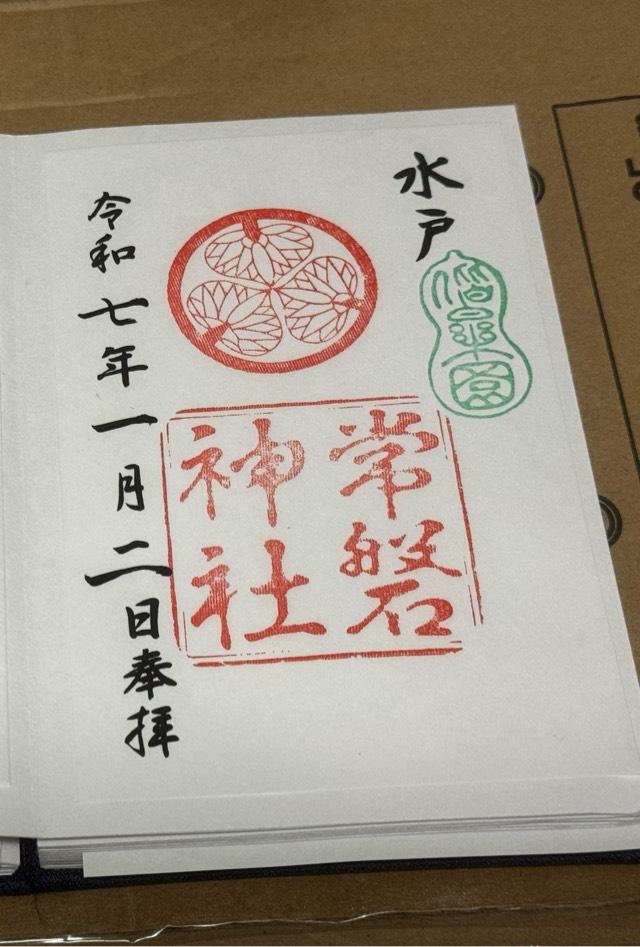 水戸
偕楽園
常磐
神社
令和七年一月二日奉拝